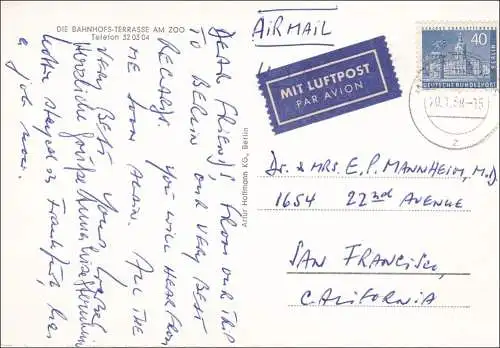 DIE BAHNHOFS-TERRASSE AM ZOO
Telefon 32 03 04
DEAR FRIENDS, FROM OUR TRIP
TO BERLIN OUR VERY BEST
REGARDS. YOU WILL HEAR FROM
ME SOON AGAIN. ALL THE
VERY BEST Yours
Herzliche Grüße
in Frankfurt, has
a job now.
Artur Hoffmann KG., Berlin
AIRMAIL
MIT LUFTPOST
PAR AVION
40
BERLIN
DEUTSCHE BUNDESPOST
z
DR. & MRS. E. P. MANNHEIM, M.D.
1654 22nd AVENUE
SAN FRANCISCO,
CALIFORNIA